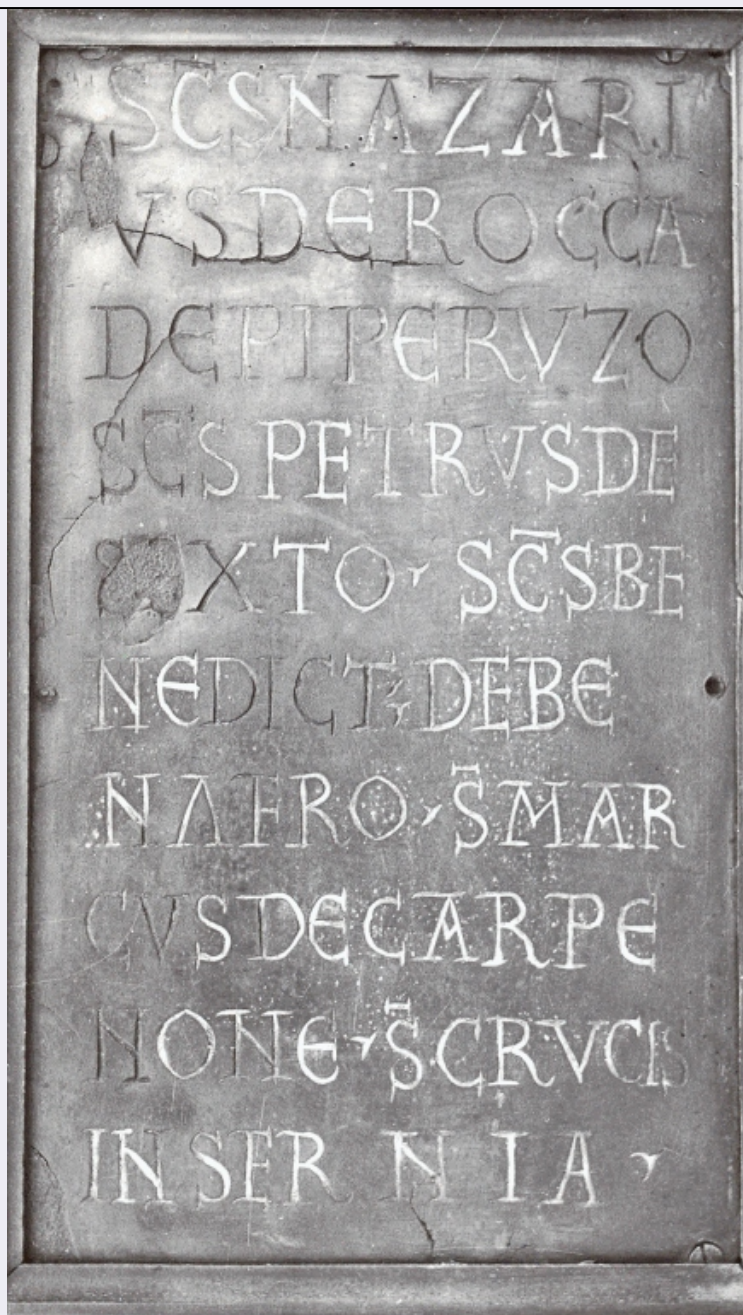 SC̄S NAZARI
VS DE ROCCA
DE PIPERVZO
SC̄S PETRVS DE
SC̄S BE
NEDICT; DE BE
NAFRO S̄ MAR
CVS DE CARPE
NONE S̄ CRVCIS
IN SERNIA